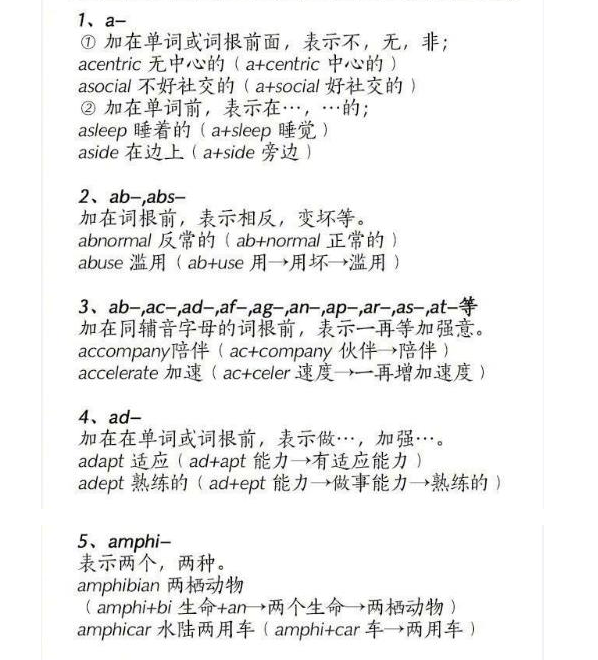 1、a–
① 加在单词或词根前面，表示不，无，非；
acentric 无中心的（a+centric 中心的）
asocial 不好社交的（a+social 好社交的）
② 加在单词前，表示在…，…的；
asleep 睡着的（a+sleep 睡觉）
aside 在边上（a+side 旁边）
2、ab–,abs–
加在词根前，表示相反，变坏等。
abnormal 反常的（ab+normal 正常的）
abuse 滥用（ab+use 用→用坏→滥用）
3、ab–,ac–,ad–,af–,ag–,an–,ap–,ar–,as–,at–等
加在同辅音字母的词根前，表示一再等加强意。
accompany陪伴（ac+company 伙伴→陪伴）
accelerate 加速（ac+celer 速度→一再增加速度）
4、ad–
加在在单词或词根前，表示做…，加强…。
adapt 适应（ad+apt 能力→有适应能力）
adept 熟练的（ad+ept 能力→做事能力→熟练的）
5、amphi–
表示两个，两种。
amphibian 两栖动物
（amphi+bi 生命+an→两个生命→两栖动物）
amphicar 水陆两用车（amphi+car 车→两用车）